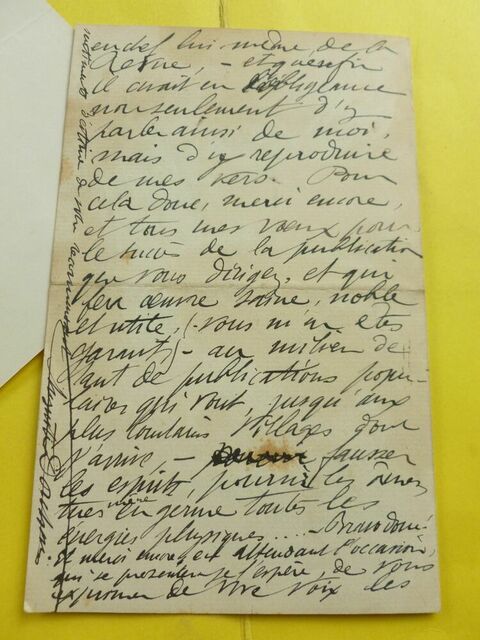 en chef lui-même, de la
Revue, — et qu'enfin
il avait eu l'obligeance
non seulement d'y
parler ainsi de moi,
mais d'y reproduire
de mes vers. Pour
cela donc, merci encore,
et tous mes vœux pour
le succès de la publication
que vous dirigez, et qui
fera œuvre saine, noble
et utile, (vous m'en êtes
garants) — au milieu de
tant de publications popu-
laires qui vont, jusqu'aux
plus lointains villages dont
j'arrive, — fausser
les esprits, pourrir les âmes
tuer même en germe toutes les
énergies physiques.....
et merci encore, en attendant l'occasion,
qui se présentera je l'espère, de vous
exprimer de vive voix les
sentiments d'estime de votre reconnaissant